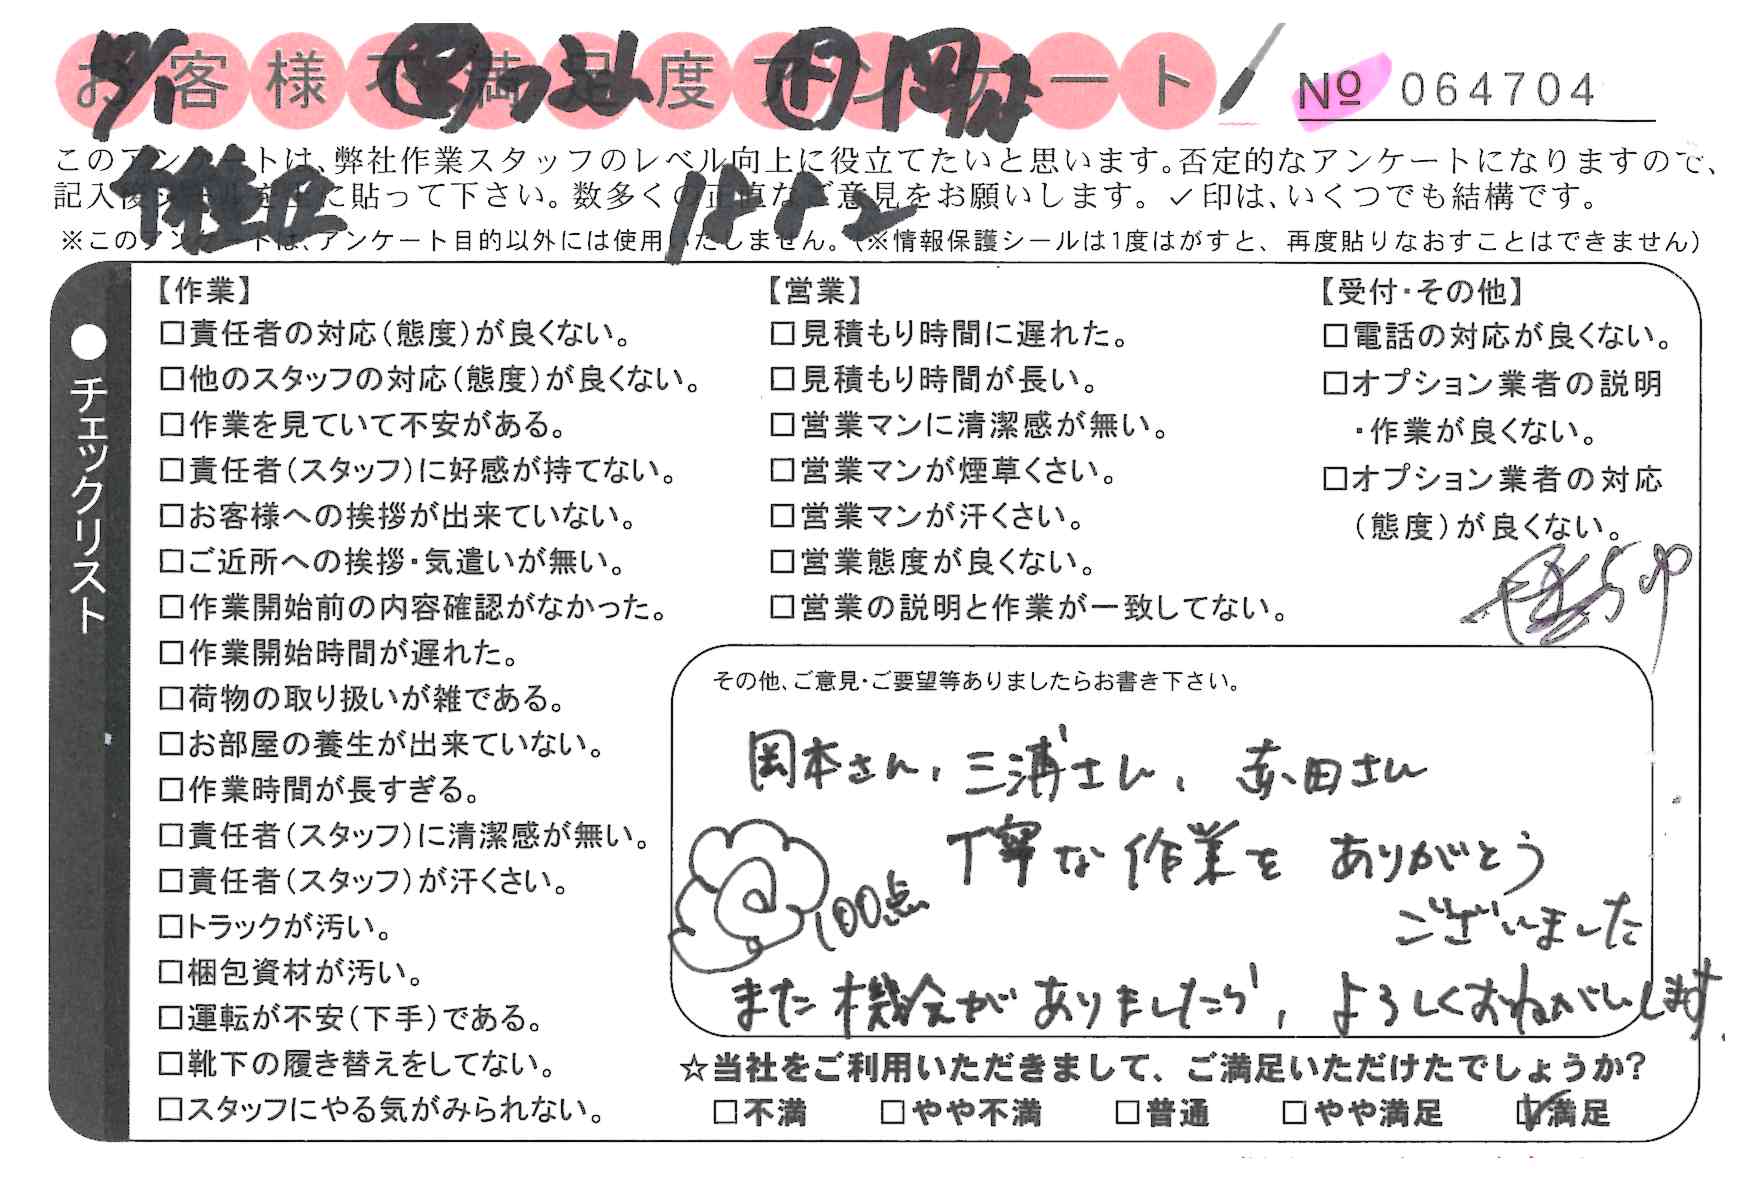 お客様不満足度アンケート
№ 064704
このアンケートは、弊社作業スタッフのレベル向上に役立てたいと思います。否定的なアンケートになりますので、
記入後シールを上に貼って下さい。数多くの正直なご意見をお願いします。✓印は、いくつでも結構です。
※このアンケートは、アンケート目的以外には使用いたしません。(※情報保護シールは1度はがすと、再度貼りなおすことはできません)
●チェックリスト
【作業】
□責任者の対応(態度)が良くない。
□他のスタッフの対応(態度)が良くない。
□作業を見ていて不安がある。
□責任者(スタッフ)に好感が持てない。
□お客様への挨拶が出来ていない。
□ご近所への挨拶・気遣いが無い。
□作業開始前の内容確認がなかった。
□作業開始時間が遅れた。
□荷物の取り扱いが雑である。
□お部屋の養生が出来ていない。
□作業時間が長すぎる。
□責任者(スタッフ)に清潔感が無い。
□責任者(スタッフ)が汗くさい。
□トラックが汚い。
□梱包資材が汚い。
□運転が不安(下手)である。
□靴下の履き替えをしてない。
□スタッフにやる気がみられない。
【営業】
□見積もり時間に遅れた。
□見積もり時間が長い。
□営業マンに清潔感が無い。
□営業マンが煙草くさい。
□営業マンが汗くさい。
□営業態度が良くない。
□営業の説明と作業が一致してない。
【受付・その他】
□電話の対応が良くない。
□オプション業者の説明
・作業が良くない。
□オプション業者の対応
(態度)が良くない。
その他、ご意見・ご要望等ありましたらお書き下さい。
岡本さん、三浦さん、赤田さん
丁寧な作業を ありがとう
ございました
100点
また機会がありましたら、よろしくおねがいします。
☆当社をご利用いただきまして、ご満足いただけたでしょうか?
□不満 □やや不満 □普通 □やや満足 ☑満足